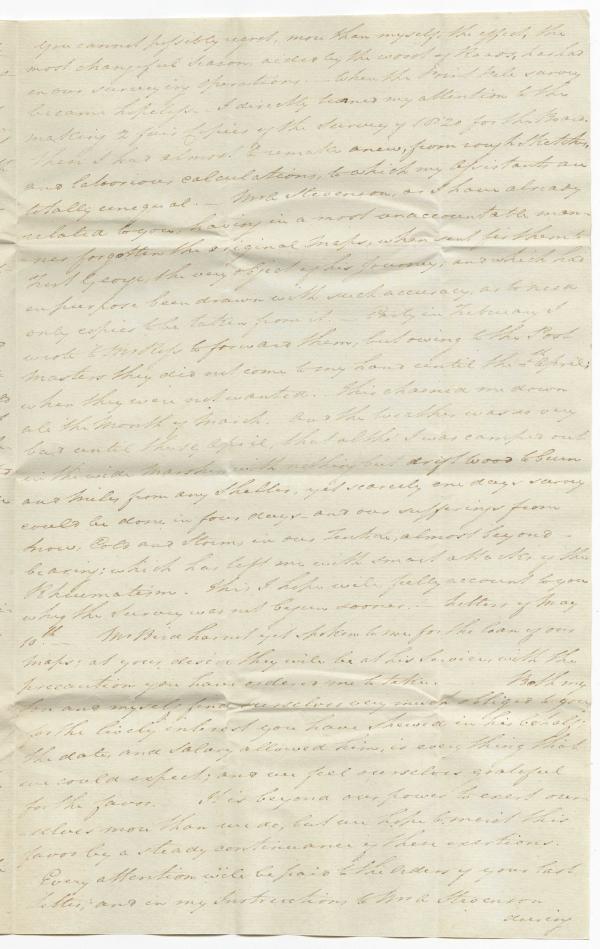 You cannot possibly regret, more than myself, the effect, the
most changeful Season, aided by the want of Roads, has had
on our surveying operations. — When the Point Pele survey
became hopeless — I directly turned my attention to the
making 2 fair Copies of the Survey of 1820 for the Board.
Then I had almost to remake anew, from rough Sketches,
and laborious calculations, to which my Assistants are
totally unequal. — Mr Stevenson, as I have already
related to you, having in a most unaccountable man-
ner forgotten the original Maps, when sent for them to
Fort George, the very object of his Journey, and which had
on purpose been drawn with such accuracy, as to need
only copies to be taken from it. — Early in February I
wrote to Mr Ross to forward them, but owing to the Post
Masters they did not come to my hand until the April,
when they were not wanted. This chained me down
all the Month of March. And the weather was so very
bad until these April, that altho' I was camped out
in the wide Marshes with nothing but drift wood to burn
and miles from any Shelter, yet scarcely one days survey
could be done in four days — and our sufferings from
Snow, Cold and Storms, in our Tent are almost beyond
bearing; which has left me with smart attacks of the
Rheumatism. This I hope will fully account to you
why the Survey was not begun sooner. — Letters of May
10th — Mr Bird has not yet spoken to me for the loan of our
maps; at your desire they will be at his Service, with the
precaution you have ordered me to take. Both my
Son and myself find ourselves very much obliged to you
for the lively interest you have shewed in his behalf;
the date, and Salary allowed him, is everything that
we could expect; and we feel ourselves grateful
for the favor. It is beyond our power to exert our-
selves more than we do, but we hope to merit this
favor by a steady continuance of these exertions.
Every attention will be paid to the Orders of your last
letter; and in my Instructions to Mr Stevenson
during